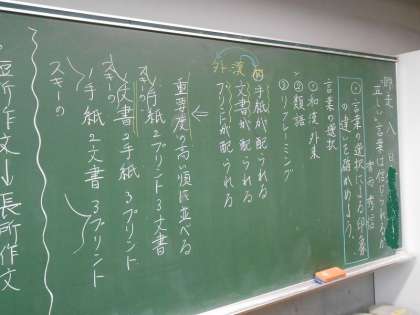 「正しい」言葉は信じられるか
言葉の選択による印象
の違いを確かめよう。
言葉の選択
①和漢外来
②類語
③リフレーミング
和 手紙が配られる
漢 文書が配られる
外 プリントが配られる
重要度が高い順に並べる
←
スキーの
1手紙2プリント3文書
スキーの
1文書2手紙3プリント
スキーの
1手紙2文書3プリント
短所作文→長所作文